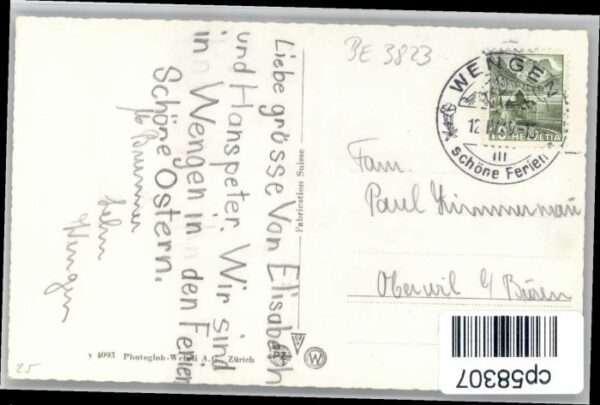 Liebe grösse Von Elisabeth
und Hanspeter. Wir sind
in Wengen in den Ferien
Schöne Ostern.
Wengen
BE 3823
WENGEN
12.
HELVETIA
schöne Ferien
Fam.
Paul
Oberwil b/ Büren
Fabrication Suisse
v 4093 Photoglob-Wehrli A.G. Zürich
W
25
cp58307